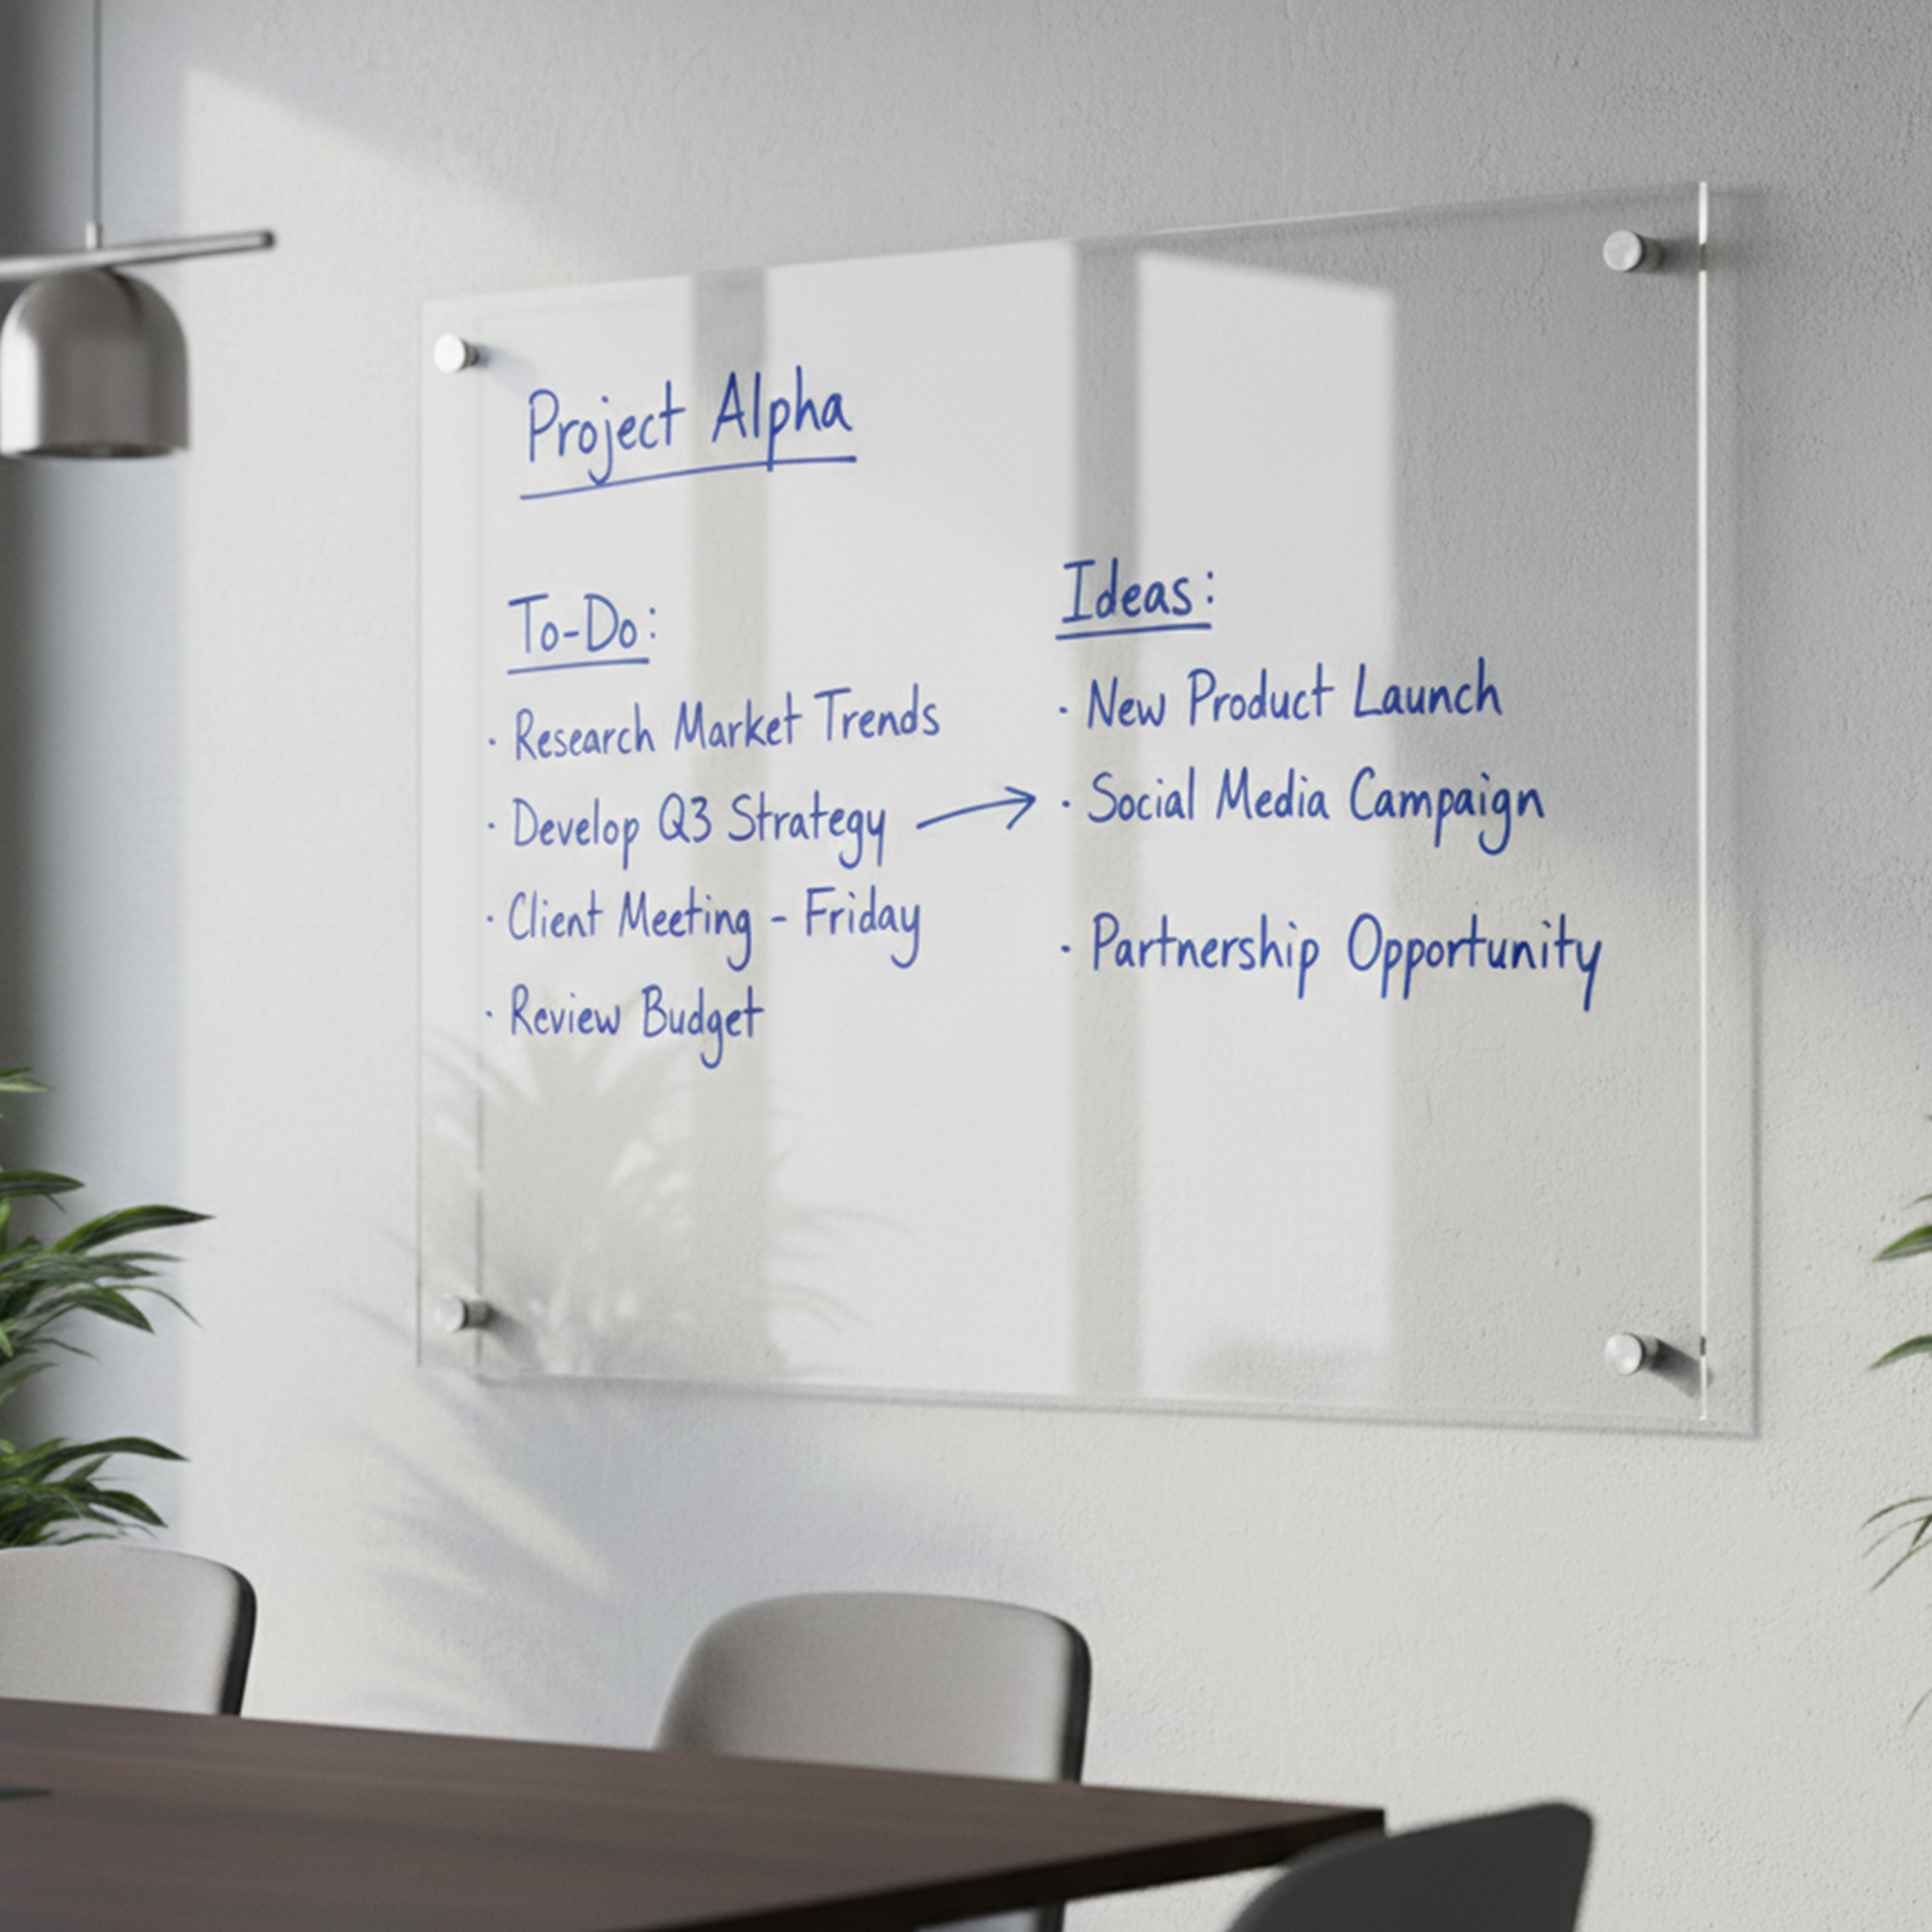 Project Alpha
To-Do:
· Research Market Trends
· Develop Q3 Strategy →
· Client Meeting - Friday
· Review Budget
Ideas:
· New Product Launch
· Social Media Campaign
· Partnership Opportunity